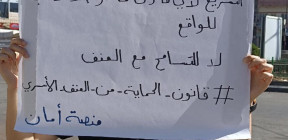 للواقع
لا للتسامح مع العنف
#قانون-الحماية-من-العنف الأسري
منصة أمان